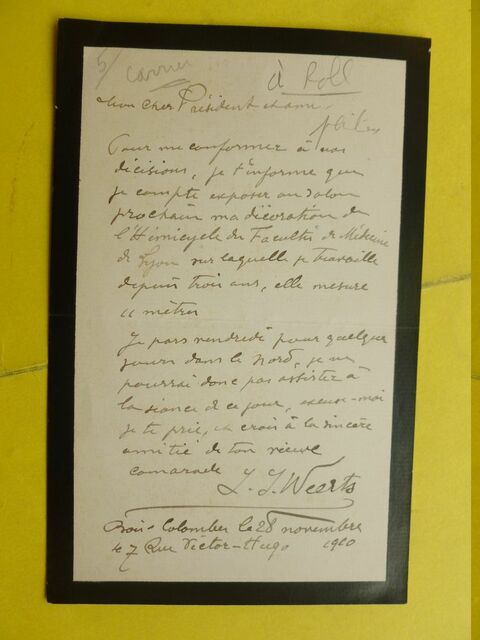 5/ Carrier
à Roll
Mon cher Président et ami,
Pour me conformer à vos
décisions, je t'informe que
je compte exposer au Salon
prochain ma décoration de
l'Hémicycle du Faculté de Médecine
de Lyon sur laquelle je travaille
depuis trois ans, elle mesure
11 mètres
Je pars vendredi pour quelques
jours dans le Nord, je ne
pourrai donc pas assister à
la séance de ce jour, excuse-moi
je te prie, et crois à la sincère
amitié de ton vieux
camarade
J. J. Weerts
Bois-Colombes le 28 novembre
7 Rue Victor-Hugo 1910